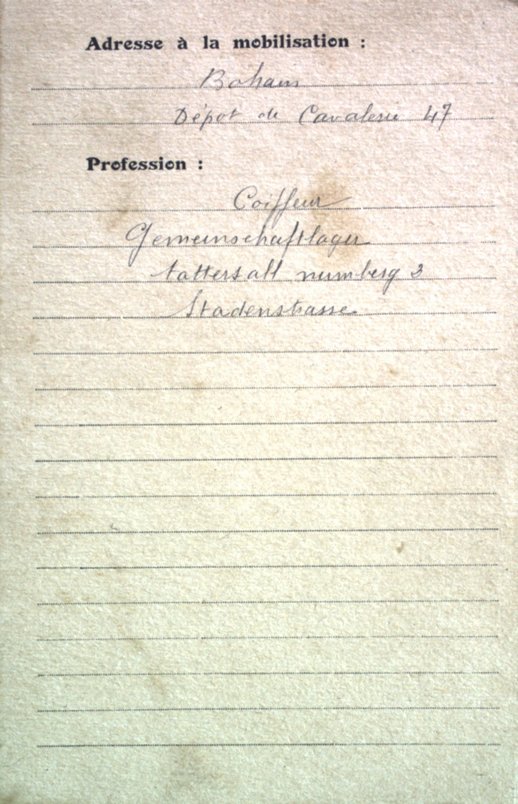 Adresse à la mobilisation :
Bohain
Dépot de Cavalerie 47
Profession :
Coiffeur
Gemeinschaftlager
tattersall nurnberg 2
Stadenstrasse